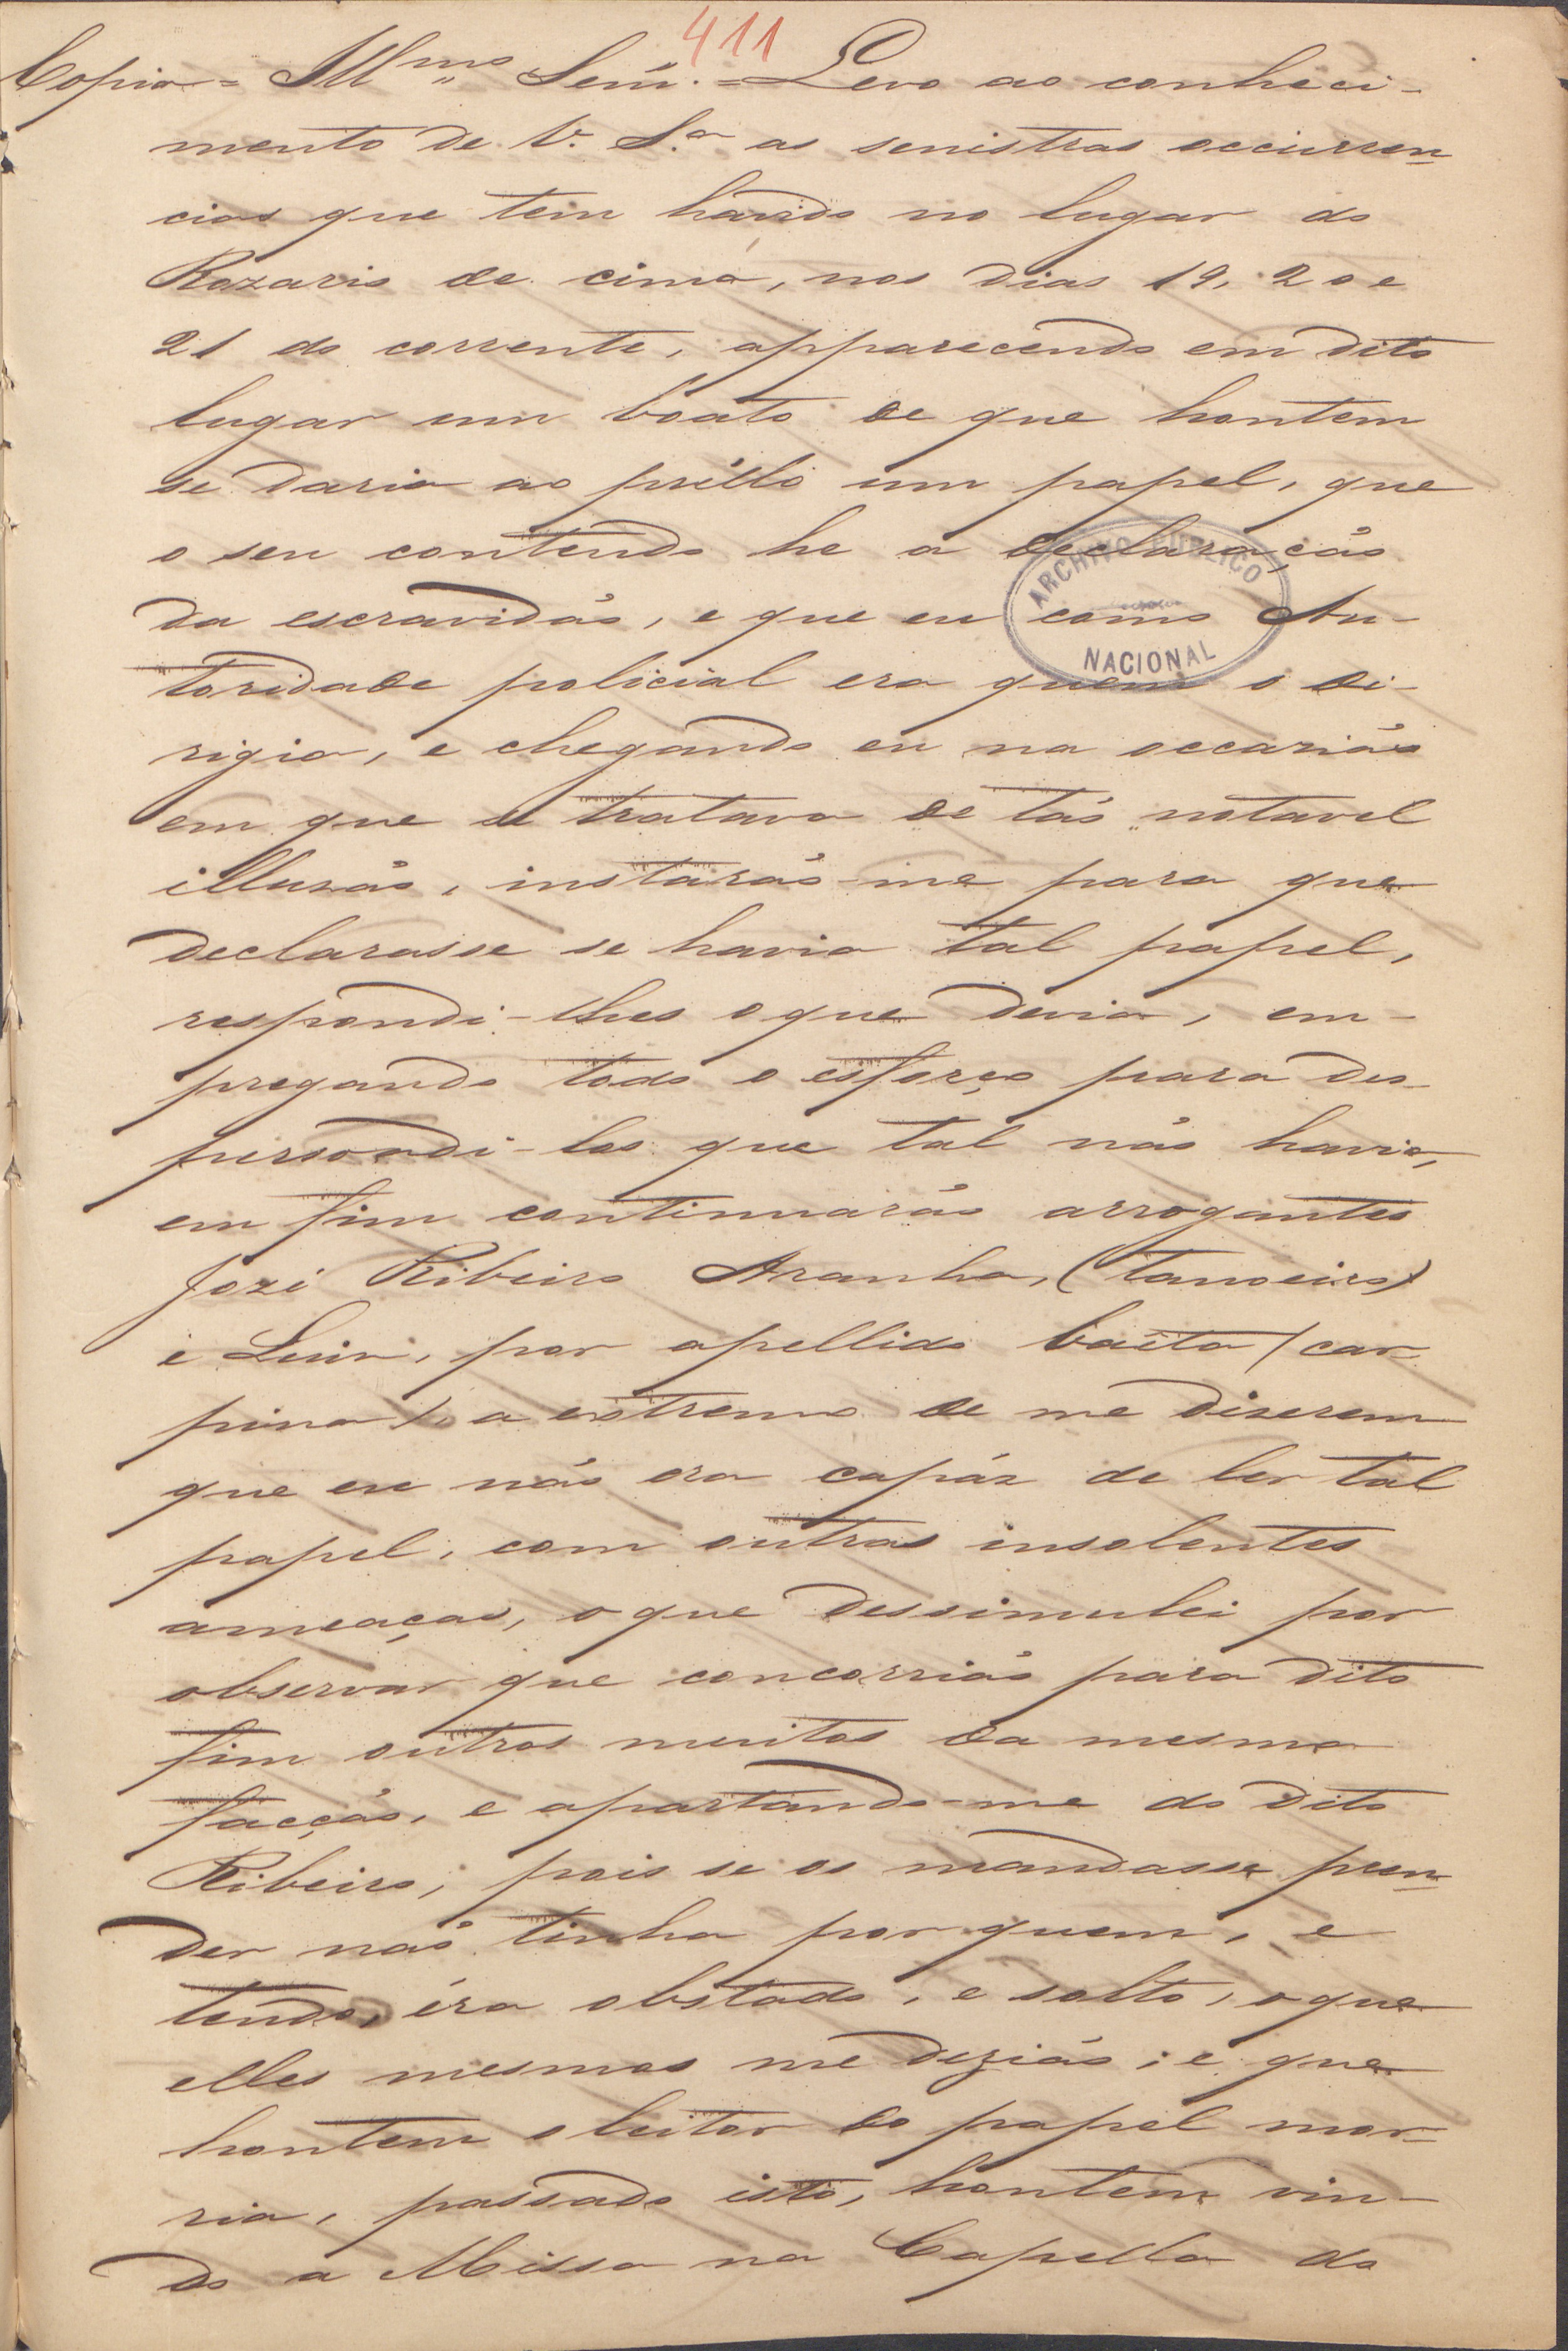 411
Copia = Illmo Senr. = Levo ao conheci-
mento de V. S.a as senistras occurren
cias que tem havido no lugar do
Rozario de cima, nos dias 19, 20 e
21 do corrente, apparecendo em dito
lugar um boato de que hontem
se daria ao prélo um papel, que
o seu contendo he a declaração
da escravidão, e que eu como Au-
toridade policial era quem o di-
rigia, e chegando eu na occazião
em que se tratava de tão notavel
illuzão, instarão-me para que
declarasse se havia tal papel,
respondi-lhes o que devia, em-
pregando todo o esforço para des-
persoadi-los que tal não havia,
em fim continuarão arrogantes
Jozé Ribeiro Aranha, (tanoeiro)
e Luiz, por apellido baêta (car
pina) a extremo de me diserem
que eu não era capáz de ler tal
papel, com outras insolentes
ameaças, o que dessimulei por
observar que concorrião para dito
fim outros muitos da mesma
facção, e apartando-me do dito
Ribeiro; pois se os mandasse pren
der não tinha por quem, e
tendo, éra obstado, e solto, o que
elles mesmos me dezião; e que
hontem o leitor do papel mor-
ria, passado isto, hontem vin-
do a Missa na Capella do
ARCHIVO PUBLICO
NACIONAL